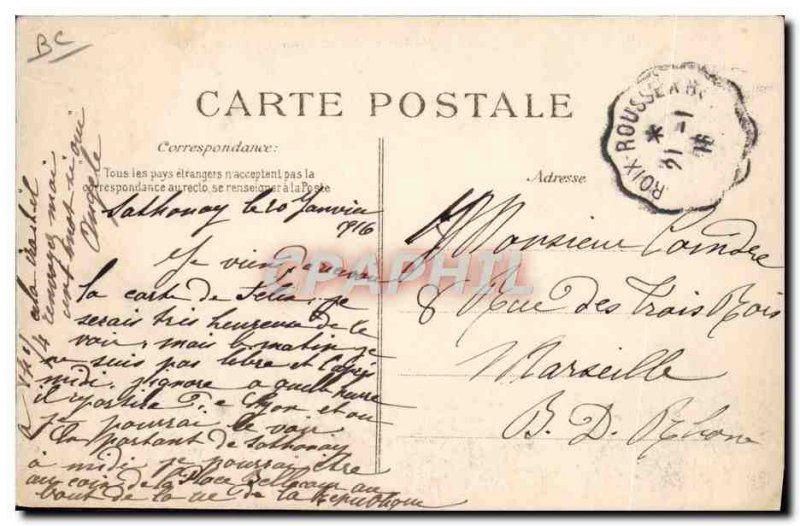 BC
CARTE POSTALE
Correspondance:
Tous les pays étrangers n'acceptent pas la
correspondance au recto, se renseigner à la Poste
Adresse
CROIX-ROUSSE
21 -1
16
Sathonay le 20 Janvier
916
Je viens
la carte de Félix, je
serais très heureuse de le
voir, mais le matin je
ne suis pas libre et l'après
midi, j'ignore à quelle heure
il part de Lyon et où
je pourrai le voir
En partant de Sathonay
à midi je pourrai être
au coin de la Place Bellecour au
bout de la rue de la République
à
envoyez moi
Monsieur Coindre
8 Rue des Trois Rois
Marseille
B. D. Rhone
CPAPHIL